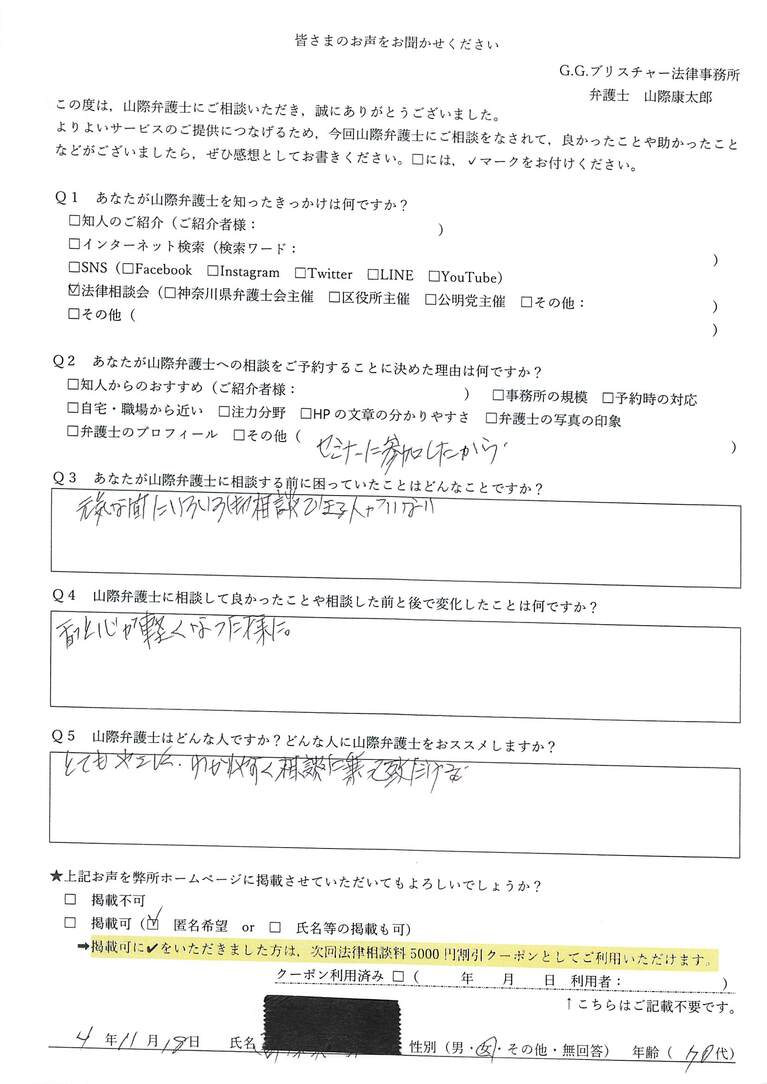 皆さまのお声をお聞かせください
G.G.ブリスチャー法律事務所
弁護士　山際康太郎
この度は，山際弁護士にご相談いただき，誠にありがとうございました。
よりよいサービスのご提供につなげるため，今回山際弁護士にご相談をなされて，良かったことや助かったこと
などがございましたら，ぜひ感想としてお書きください。□には，✓マークをお付けください。
Q１　あなたが山際弁護士を知ったきっかけは何ですか？
□知人のご紹介（ご紹介者様：　　　）
□インターネット検索（検索ワード：　　　）
□SNS（□Facebook　□Instagram　□Twitter　□LINE　□YouTube）
☑法律相談会（□神奈川県弁護士会主催　□区役所主催　□公明党主催　□その他：　　　）
□その他（　　　）
Q２　あなたが山際弁護士への相談をご予約することに決めた理由は何ですか？
□知人からのおすすめ（ご紹介者様：　　　）　□事務所の規模　□予約時の対応
□自宅・職場から近い　□注力分野　□HPの文章の分かりやすさ　□弁護士の写真の印象
□弁護士のプロフィール　□その他（　セミナーに参加したから　）
Q３　あなたが山際弁護士に相談する前に困っていたことはどんなことですか？
元気な間にいろいろ相談出来る人がいない
Q４　山際弁護士に相談して良かったことや相談した前と後で変化したことは何ですか？
心が軽くなった様だ。
Q５　山際弁護士はどんな人ですか？どんな人に山際弁護士をおススメしますか？
とても　わかりやすく相談に乗って致だける
★上記お声を弊所ホームページに掲載させていただいてもよろしいでしょうか？
□　掲載不可
□　掲載可（☑　匿名希望　or　□　氏名等の掲載も可）
➡掲載可に✔をいただきました方は，次回法律相談料5000円割引クーポンとしてご利用いただけます。
クーポン利用済み　□（　　年　　月　　日　利用者：　　　）
↑こちらはご記載不要です。
4　年11月18日　氏名　性別（男・女・その他・無回答）　年齢（　70代）